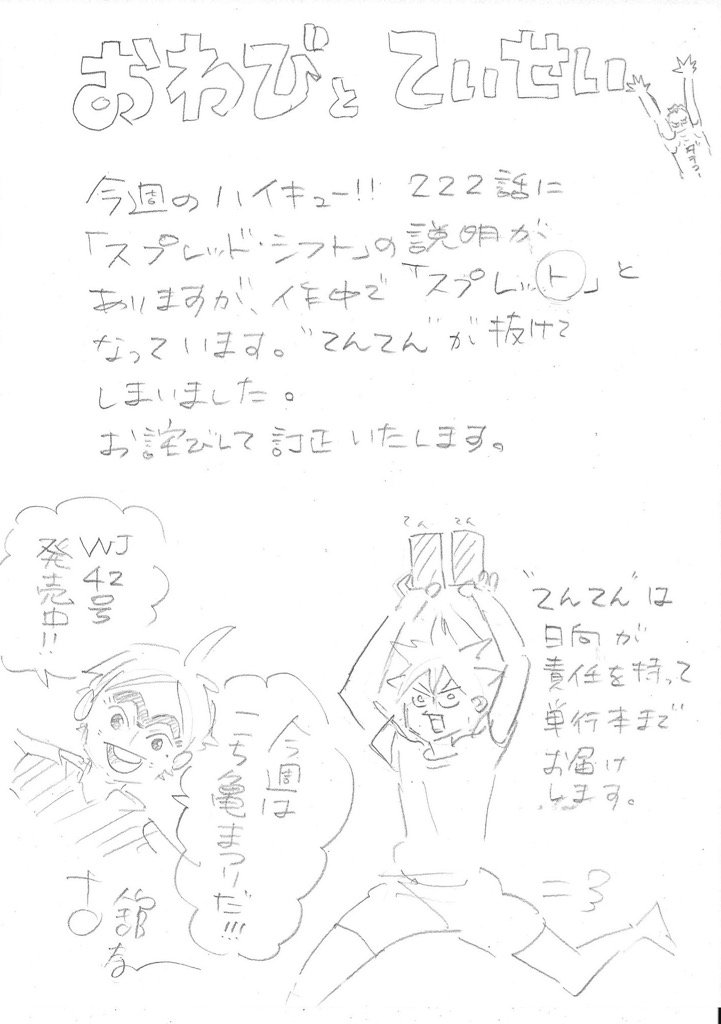 おわびと ていせい
今週のハイキュー!! 222話に
「スプレッド・シフト」の説明が
ありますが、作中で「スプレット」と
なっています。"てんてん"が抜けて
しまいました。
お詫びして訂正いたします。
WJ
42号
発売中!!
今週は
こち亀まつりだ!!!
てん てん
"てんてん"は
日向が
責任を持って
単行本まで
お届け
します。
古舘春一